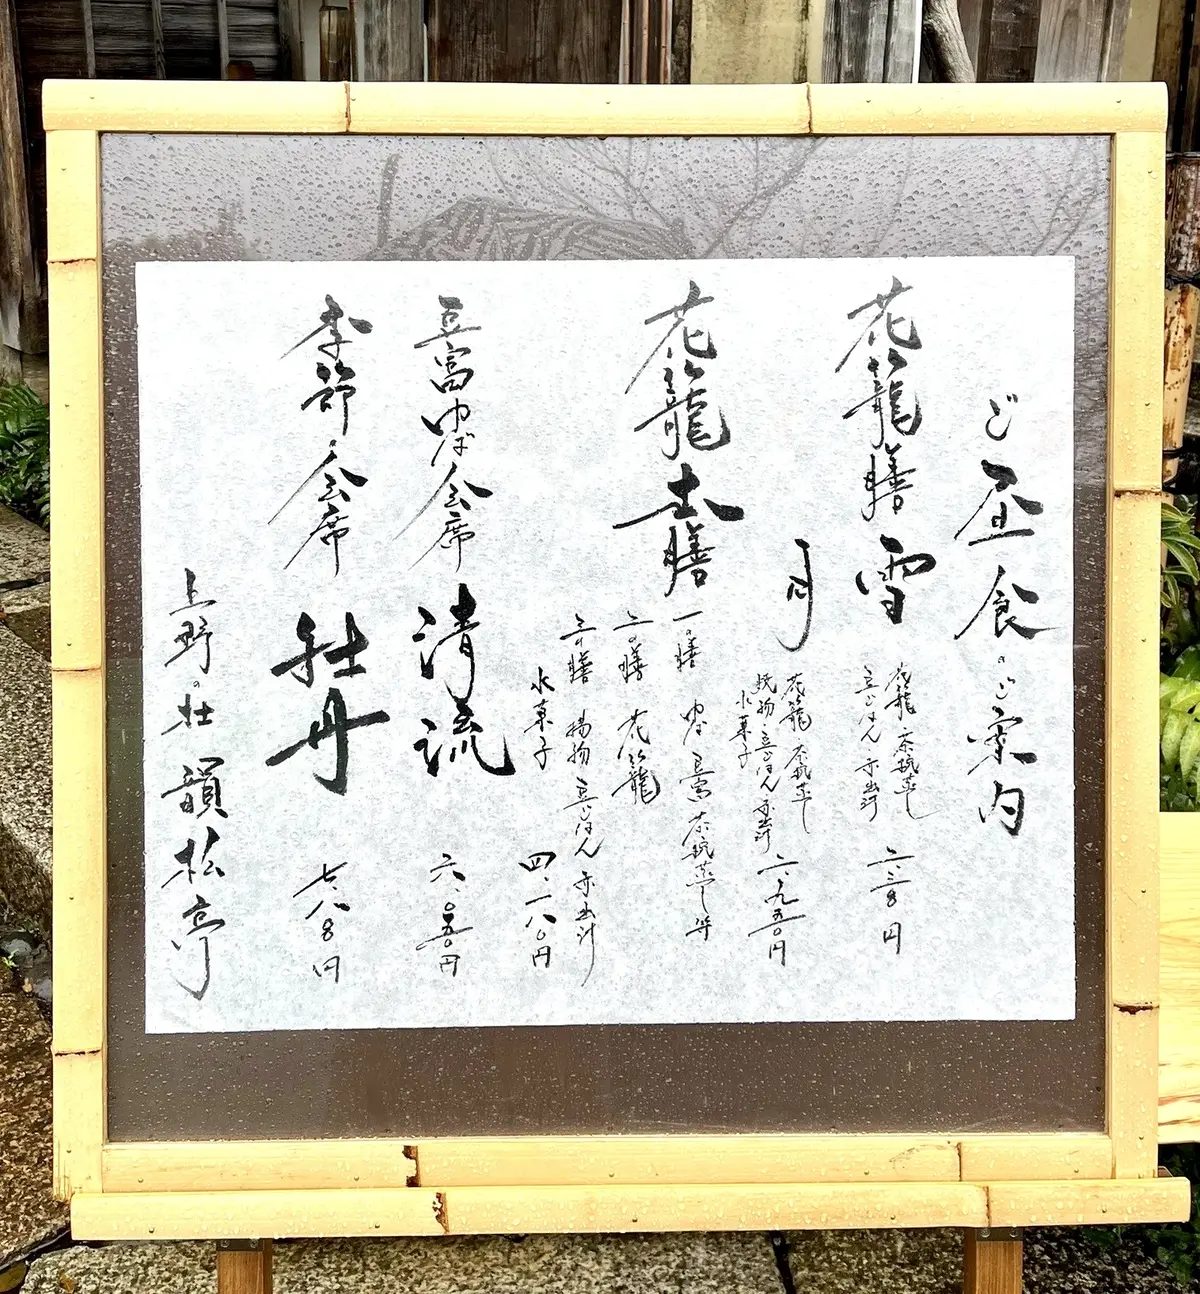 ご昼食のご案内
花籠膳 雪
花籠 茶碗蒸し
豆ごはん 赤出汁
二.三〇〇円
月
花籠 茶碗蒸し
焼物・豆ごはん 赤出汁
水菓子
二.九五〇円
花籠本膳
一の膳 ゆば 豆富 茶碗蒸し 等
二の膳 花籠
三の膳 揚物 豆ごはん 赤出汁
水菓子
四.一八〇円
豆富ゆば会席 清流 六.〇五〇円
季節の会席 牡丹 七.八〇〇円
上野の杜 韻松亭